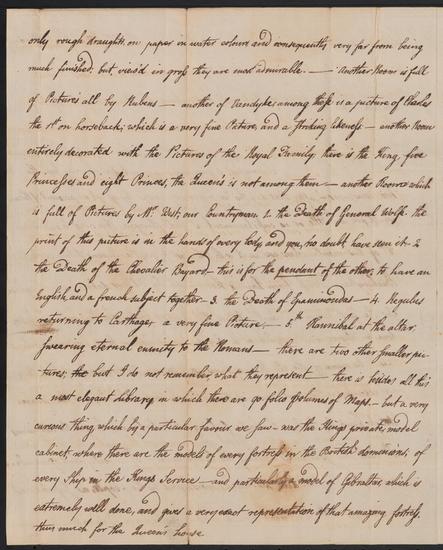 only rough draughts, on paper in water colours and consequently very far from being
much finished, but view'd in gross they are most admirable. — another Room is full
of Pictures all by Rubens — another of Vandyke; among these is a picture of Charles
the 1st on horseback; which is a very fine Picture, and a striking likeness — another Room
entirely decorated with the Pictures of the Royal Family, there is the King, five
Princesses and eight Princes, the Queen's is not among them — another Room which
is full of Pictures by Mr. West, our Countryman. 1. the Death of General Wolfe. the
print of this picture is in the hands of every body, and you, no doubt have seen it — 2
the Death of the Chevalier Bayard — this is for the pendant of the other, to have an
English, and a french subject together — 3. the Death of Epaminondas — 4. Regulus
returning to Carthage, a very fine Picture, — 5.th Hannibal at the altar,
swearing eternal enmity to the Romans — there are two other smaller pic-
tures, but I do not remember what they represent — there is besides all this
a most elegant library in which there are 90 folio Volumes of Maps. — but a very
curious thing, which by a particular favour we saw — was the Kings private model
cabinet, where there are the models of every fortress in the British dominions, of
every Ship in the Kings Service — and particularly a model of Gibraltar, which is
extremely well done, and gives a very exact representation of that amazing fortress,
thus much for the Queen's house